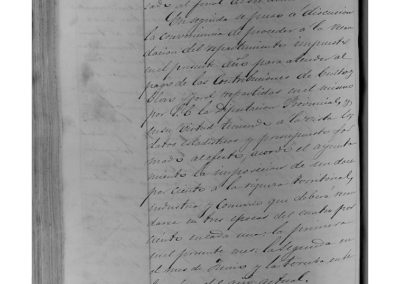 En seguida se puso á discusion
la conveniencia de proceder á la recau
dacion del repartimiento impuesto
en el presente año para atender al
pago de las Contribuciones de Culto y
Clero repartidas en el mismo
por S. E. la Diputacion Provincial, y
en su virtud teniendo á la vista los
datos estadisticos y presupuesto for
mado al efecto, acordó el ayunta
miento la imposicion de un doce
por ciento á la riqueza territorial,
industria y Comercio que deberá recau
darse en tres épocas del cuatro por
ciento cada una: la primera
en el presente mes, la segunda en
el mes de Junio y la tercera en
del año actual.